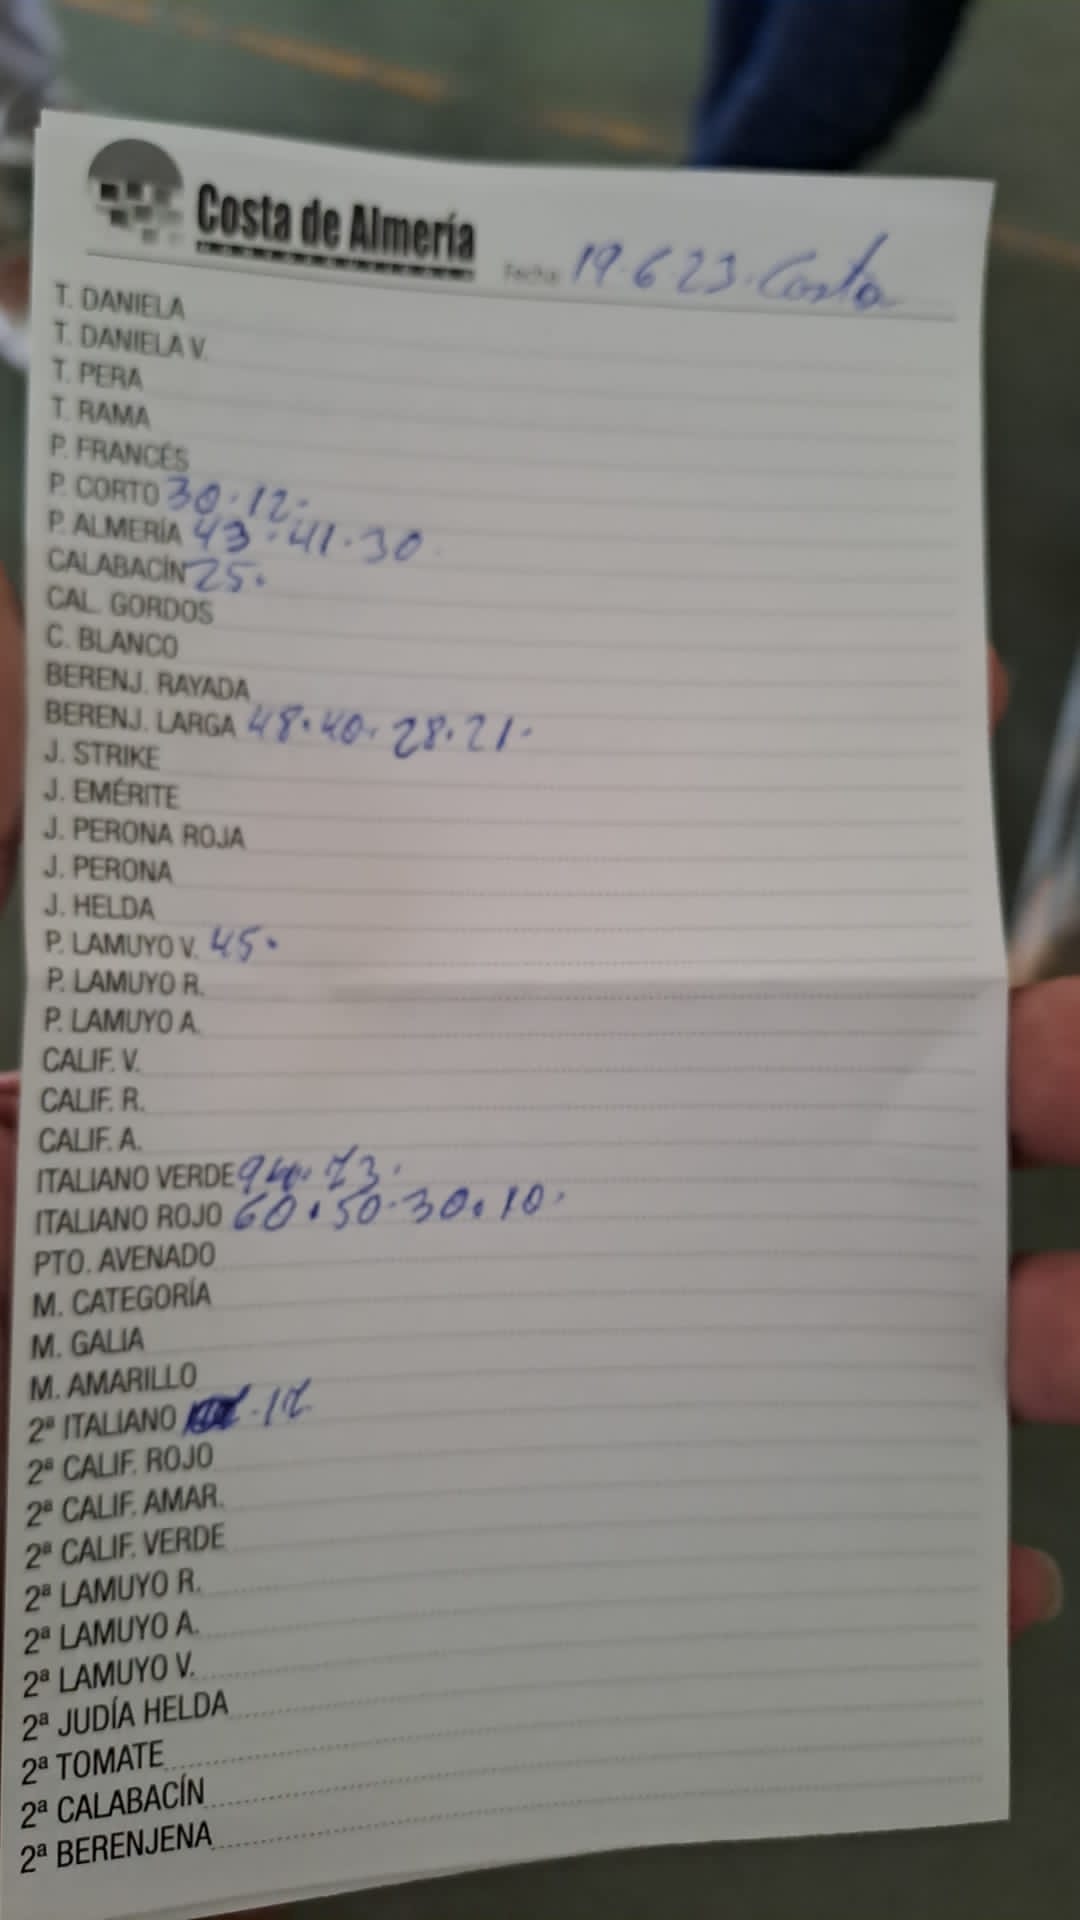 Costa de Almería
Fecha: 19.6.23. Costa
T. DANIELA
T. DANIELA V.
T. PERA
T. RAMA
P. FRANCÉS
P. CORTO 30.12.
P. ALMERÍA 43.41.30.
CALABACÍN 25.
CAL. GORDOS
C. BLANCO
BERENJ. RAYADA
BERENJ. LARGA 48.40.28.21.
J. STRIKE
J. EMÉRITE
J. PERONA ROJA
J. PERONA
J. HELDA
P. LAMUYO V. 45.
P. LAMUYO R.
P. LAMUYO A.
CALIF. V.
CALIF. R.
CALIF. A.
ITALIANO VERDE 94.73.
ITALIANO ROJO 60.50.30.10.
PTO. AVENADO
M. CATEGORÍA
M. GALIA
M. AMARILLO
2ª ITALIANO
2ª CALIF. ROJO
2ª CALIF. AMAR.
2ª CALIF. VERDE
2ª LAMUYO R.
2ª LAMUYO A.
2ª LAMUYO V.
2ª JUDÍA HELDA
2ª TOMATE
2ª CALABACÍN
2ª BERENJENA